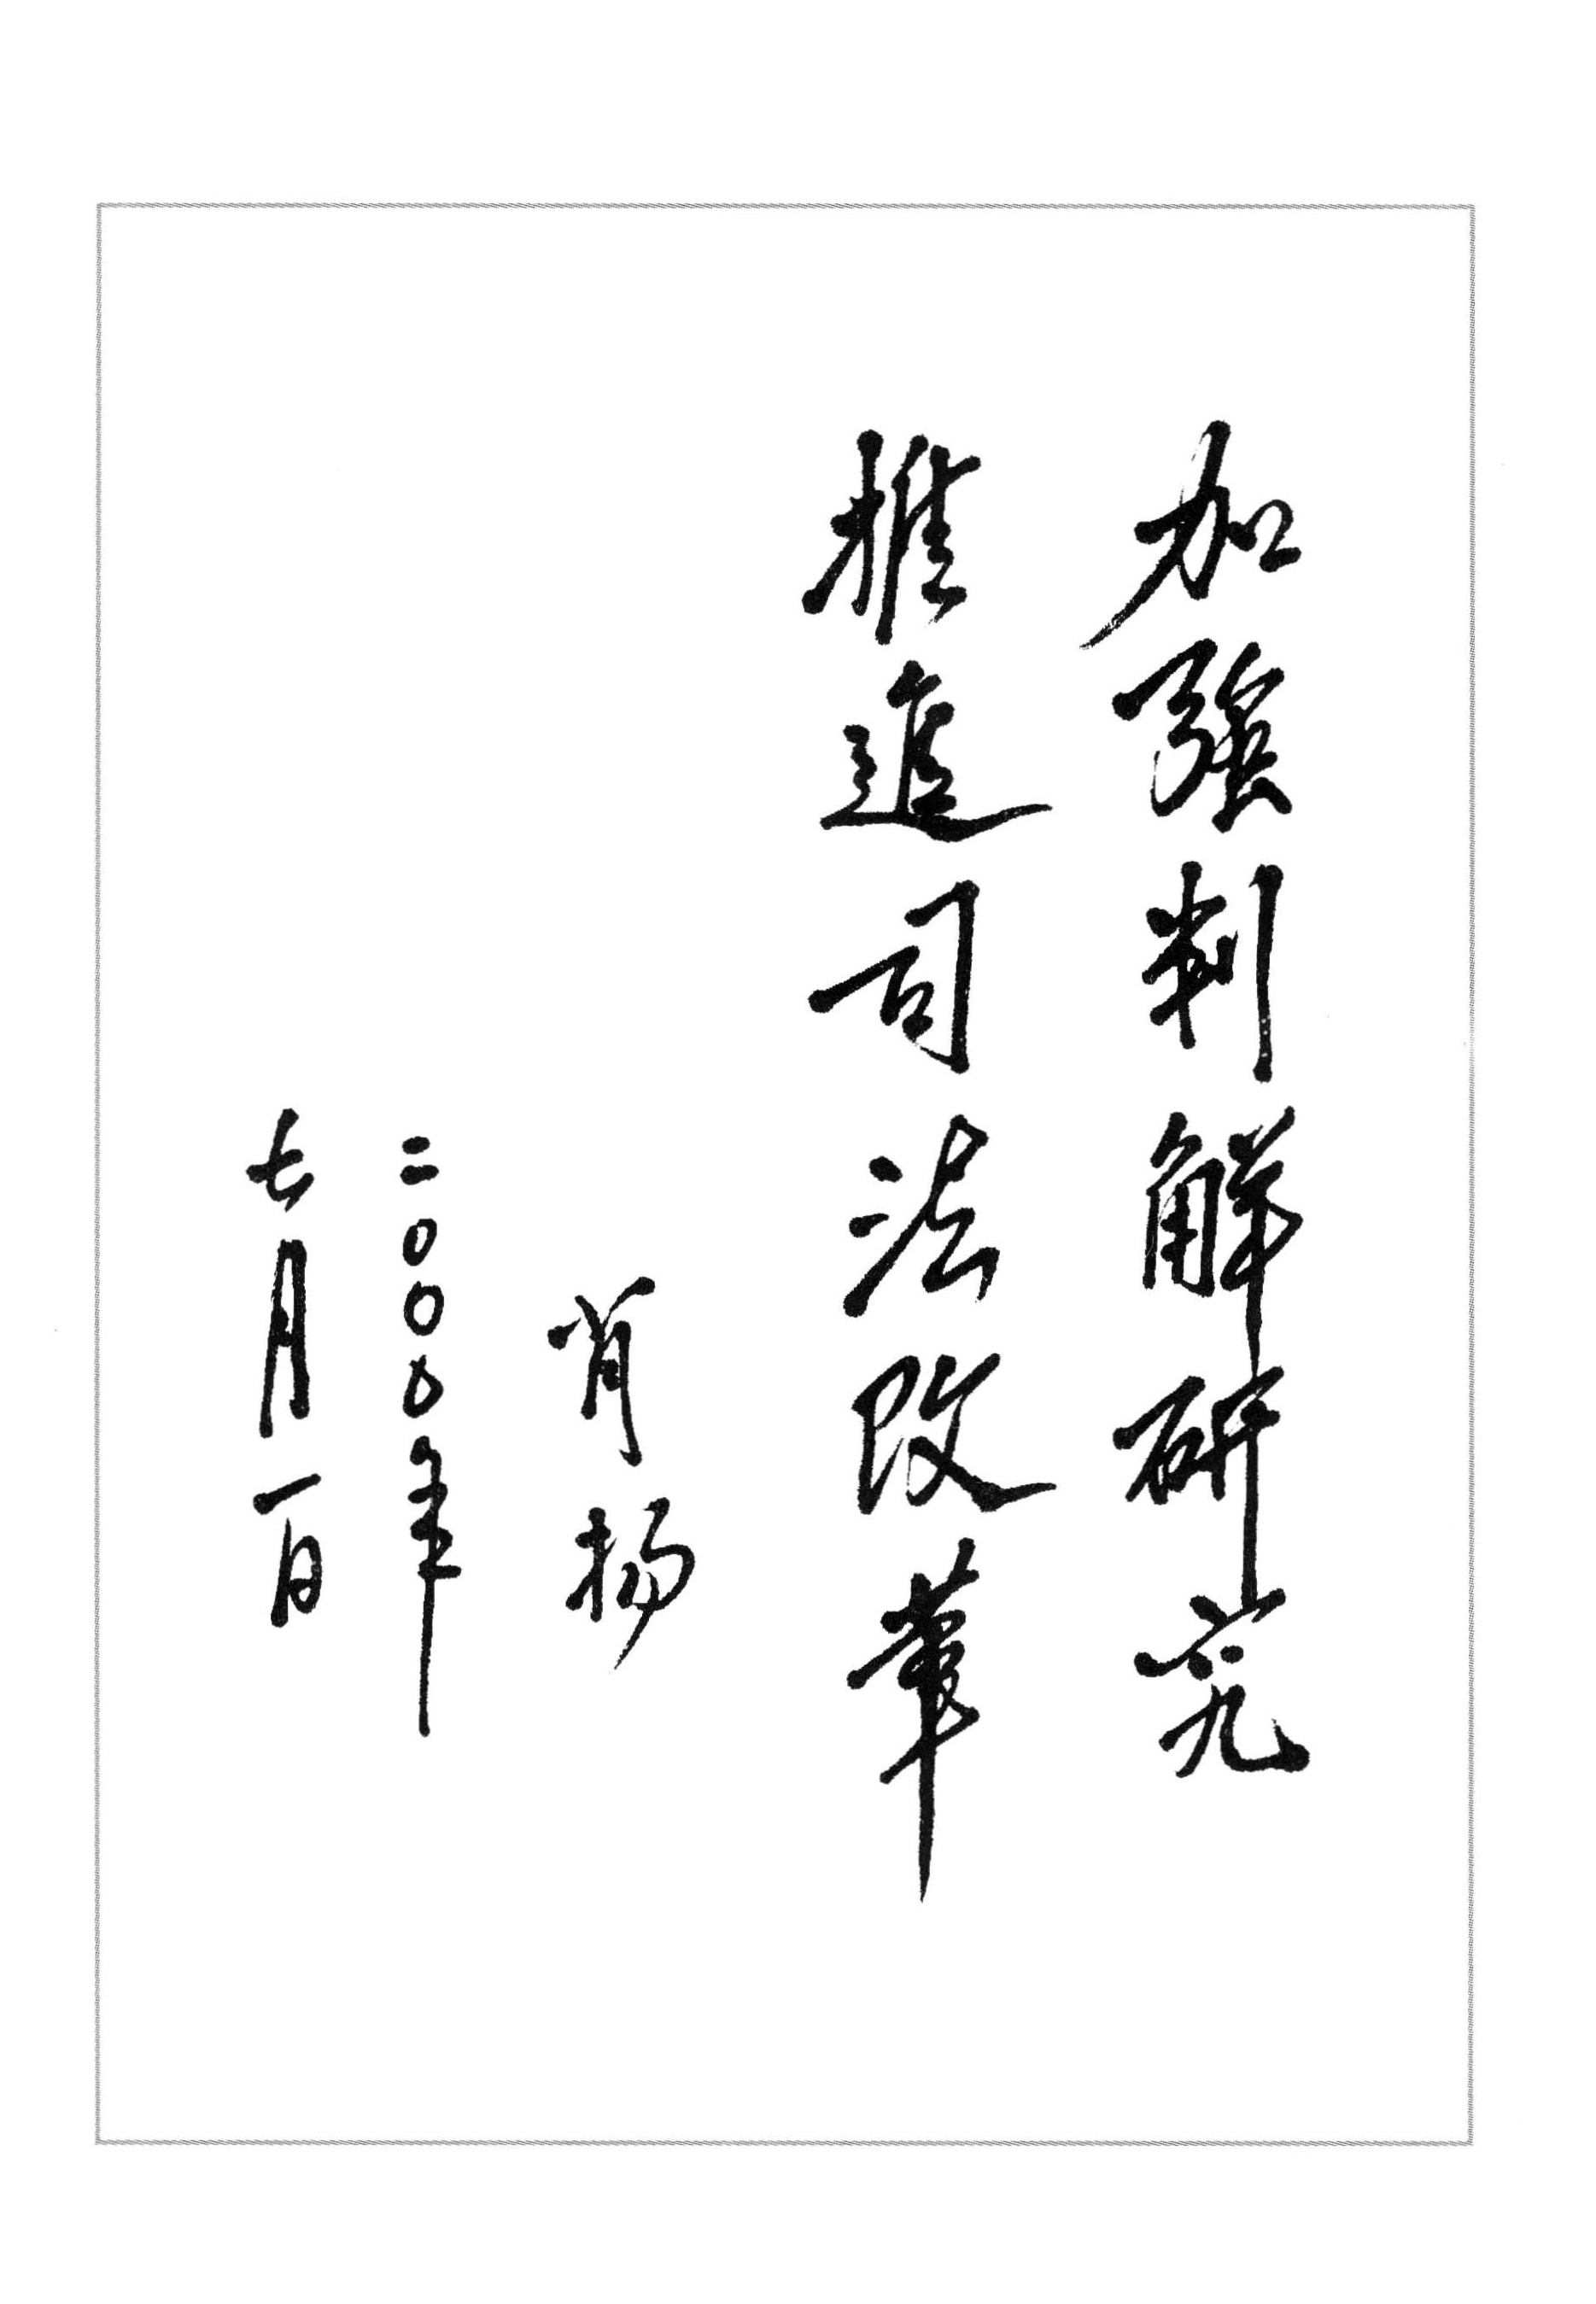 加强判解研究
推進司法改革
肖扬
二〇〇〇年
七月一日